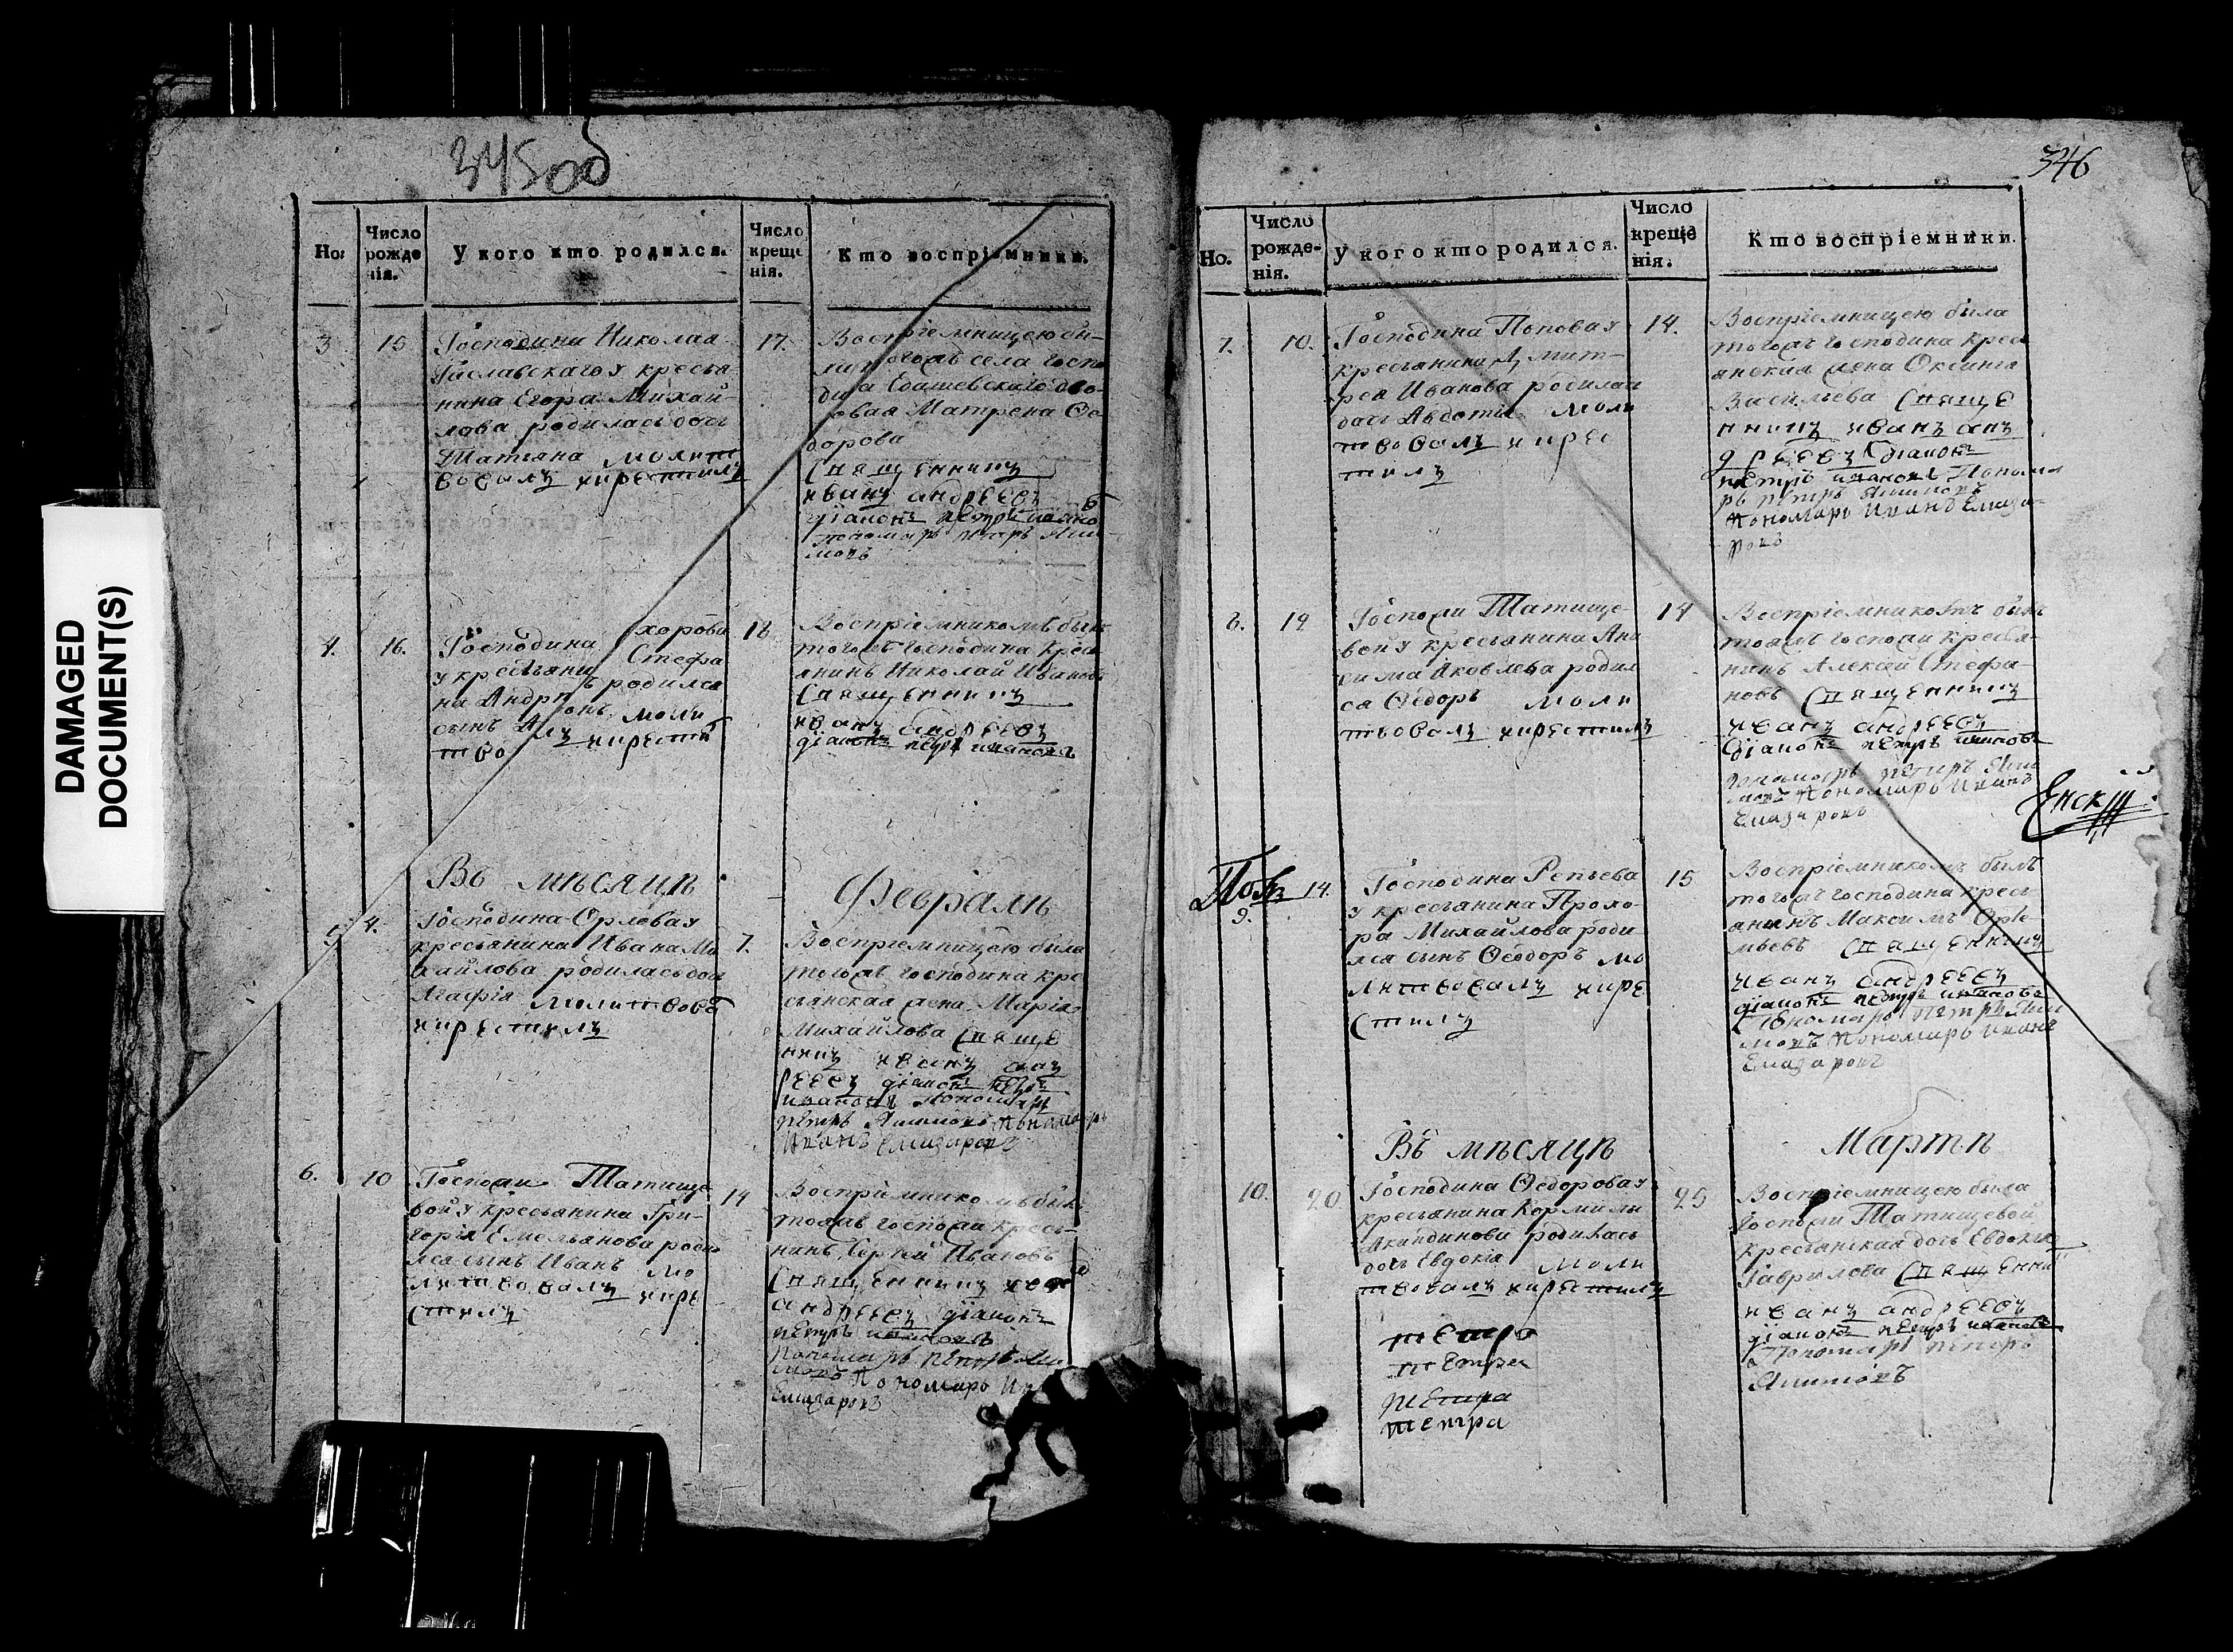 DAMAGED
DOCUMENT(S)
345об
Но:
Число
рожде
нія.
У кого кто родился.
Число
креще
нія.
Кто воспріемники.
3
15
Господина Николая
у кресья-
нина Егора Михай-
лова родилась дочь
Татьяна молит
вовалъ икрестилъ
17.
Воспріемницею бы-
ла тогожъ села госпо
дво-
овая Матрена Ѳе
дорова
Священникъ
иванъ андреевъ
діаконъ петръ иванов
пономарь петръ Яки-
мовъ
4.
16.
Господина хорова
у кресьяни Стефа
на Андре родился
сынъ моли
тво лъ икрести
18
Воспріемникомъ былъ
тогожъ господина крес
янинъ Николай Ивановъ
Священникъ
иванъ андреевъ
діаконъ петръ ивановъ
Въ мѣсяцѣ
Февралѣ
5
4.
Господина Орлова у
кресьянина Ивана Ми
хайлова родилась доч
Агафія молитвова
икрестилъ
7.
Воспріемницею была
тогожъ господина кре
сьянская жена Марія
Михайлова Свяще
нникъ иванъ анд
реевъ діаконъ петръ
ивановъ пономарь
петръ Якимовъ пономарь
Иванъ Елизаровъ
6.
10
Госпожи Татище
вой у кресьянина Гри-
горія Емельянова роди
лся сынъ Иванъ мо
литвовалъ икре
стилъ
14
Воспріемникомъ былъ
тояжъ госпожи кресь-
нинъ Сергей Ивановъ
Священникъ иван
андреевъ діаконъ
петръ ивановъ
пономарь петръ Яки
мовъ пономарь Ив
Елизаровъ
346
Но.
Число
рожде-
нія.
У кого кто родился.
Число
креще
нія.
Кто воспріемники.
7.
10.
Господина Попова у
кресьянина Дмит-
рея Иванова родилас
дочь Авдотья моли
твовалъ икрес
тилъ
14.
Воспріемницею была
тогожъ господина крес
янская жена Оксинья
Васильева Свяще
нникъ иванъ анъ
дреевъ діаконъ
петръ ивановъ Понома
рь петръ Якимовъ
пономарь Иванъ Елиза-
ровъ
8.
12
Госпожи Татище-
вой у кресьянина Ани
сима Яковлева родил
ся Ѳедоръ моли
твовалъ икрестилъ
14
Воспріемникомъ былъ
тояжъ госпожи кресья-
нинъ Алексѣй Стефа-
новъ Священникъ
иванъ андреевъ
діаконъ петръ ивановъ
пономарь петръ Яки
мовъ пономарь Иванъ
Елизаровъ
9.
14.
Господина Репьева
у кресьянина Прохо-
ра Михайлова роди
лся сынъ Ѳеодоръ мо
литвовалъ икре
стилъ
15
Воспріемникомъ былъ
тогожъ господина кресь
янинъ Максимъ Арте-
мьевъ Священникъ
иванъ андреевъ
діаконъ петръ ивановъ
пономарь петръ Яки
мовъ пономарь Иванъ
Елизаровъ
Въ мѣсяцѣ
Мартѣ
10.
20
Господина Ѳедорова у
кресьянина Кормили
Акиндинова родилась
дочь Евдокія моли
твовалъ икрестилъ
25
Воспріемницею была
госпожи Татищевой
кресьянская дочь Евдокія
Гаврилова Священни
иванъ андреевъ
діаконъ петръ ивановъ
Пономарь петръ
Якимовъ
петра
петра
петра
петра